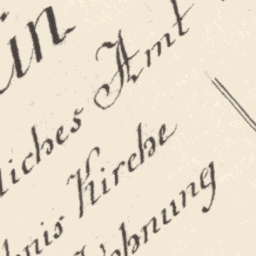 in
liches Amt
nis Kirche
Wohnung